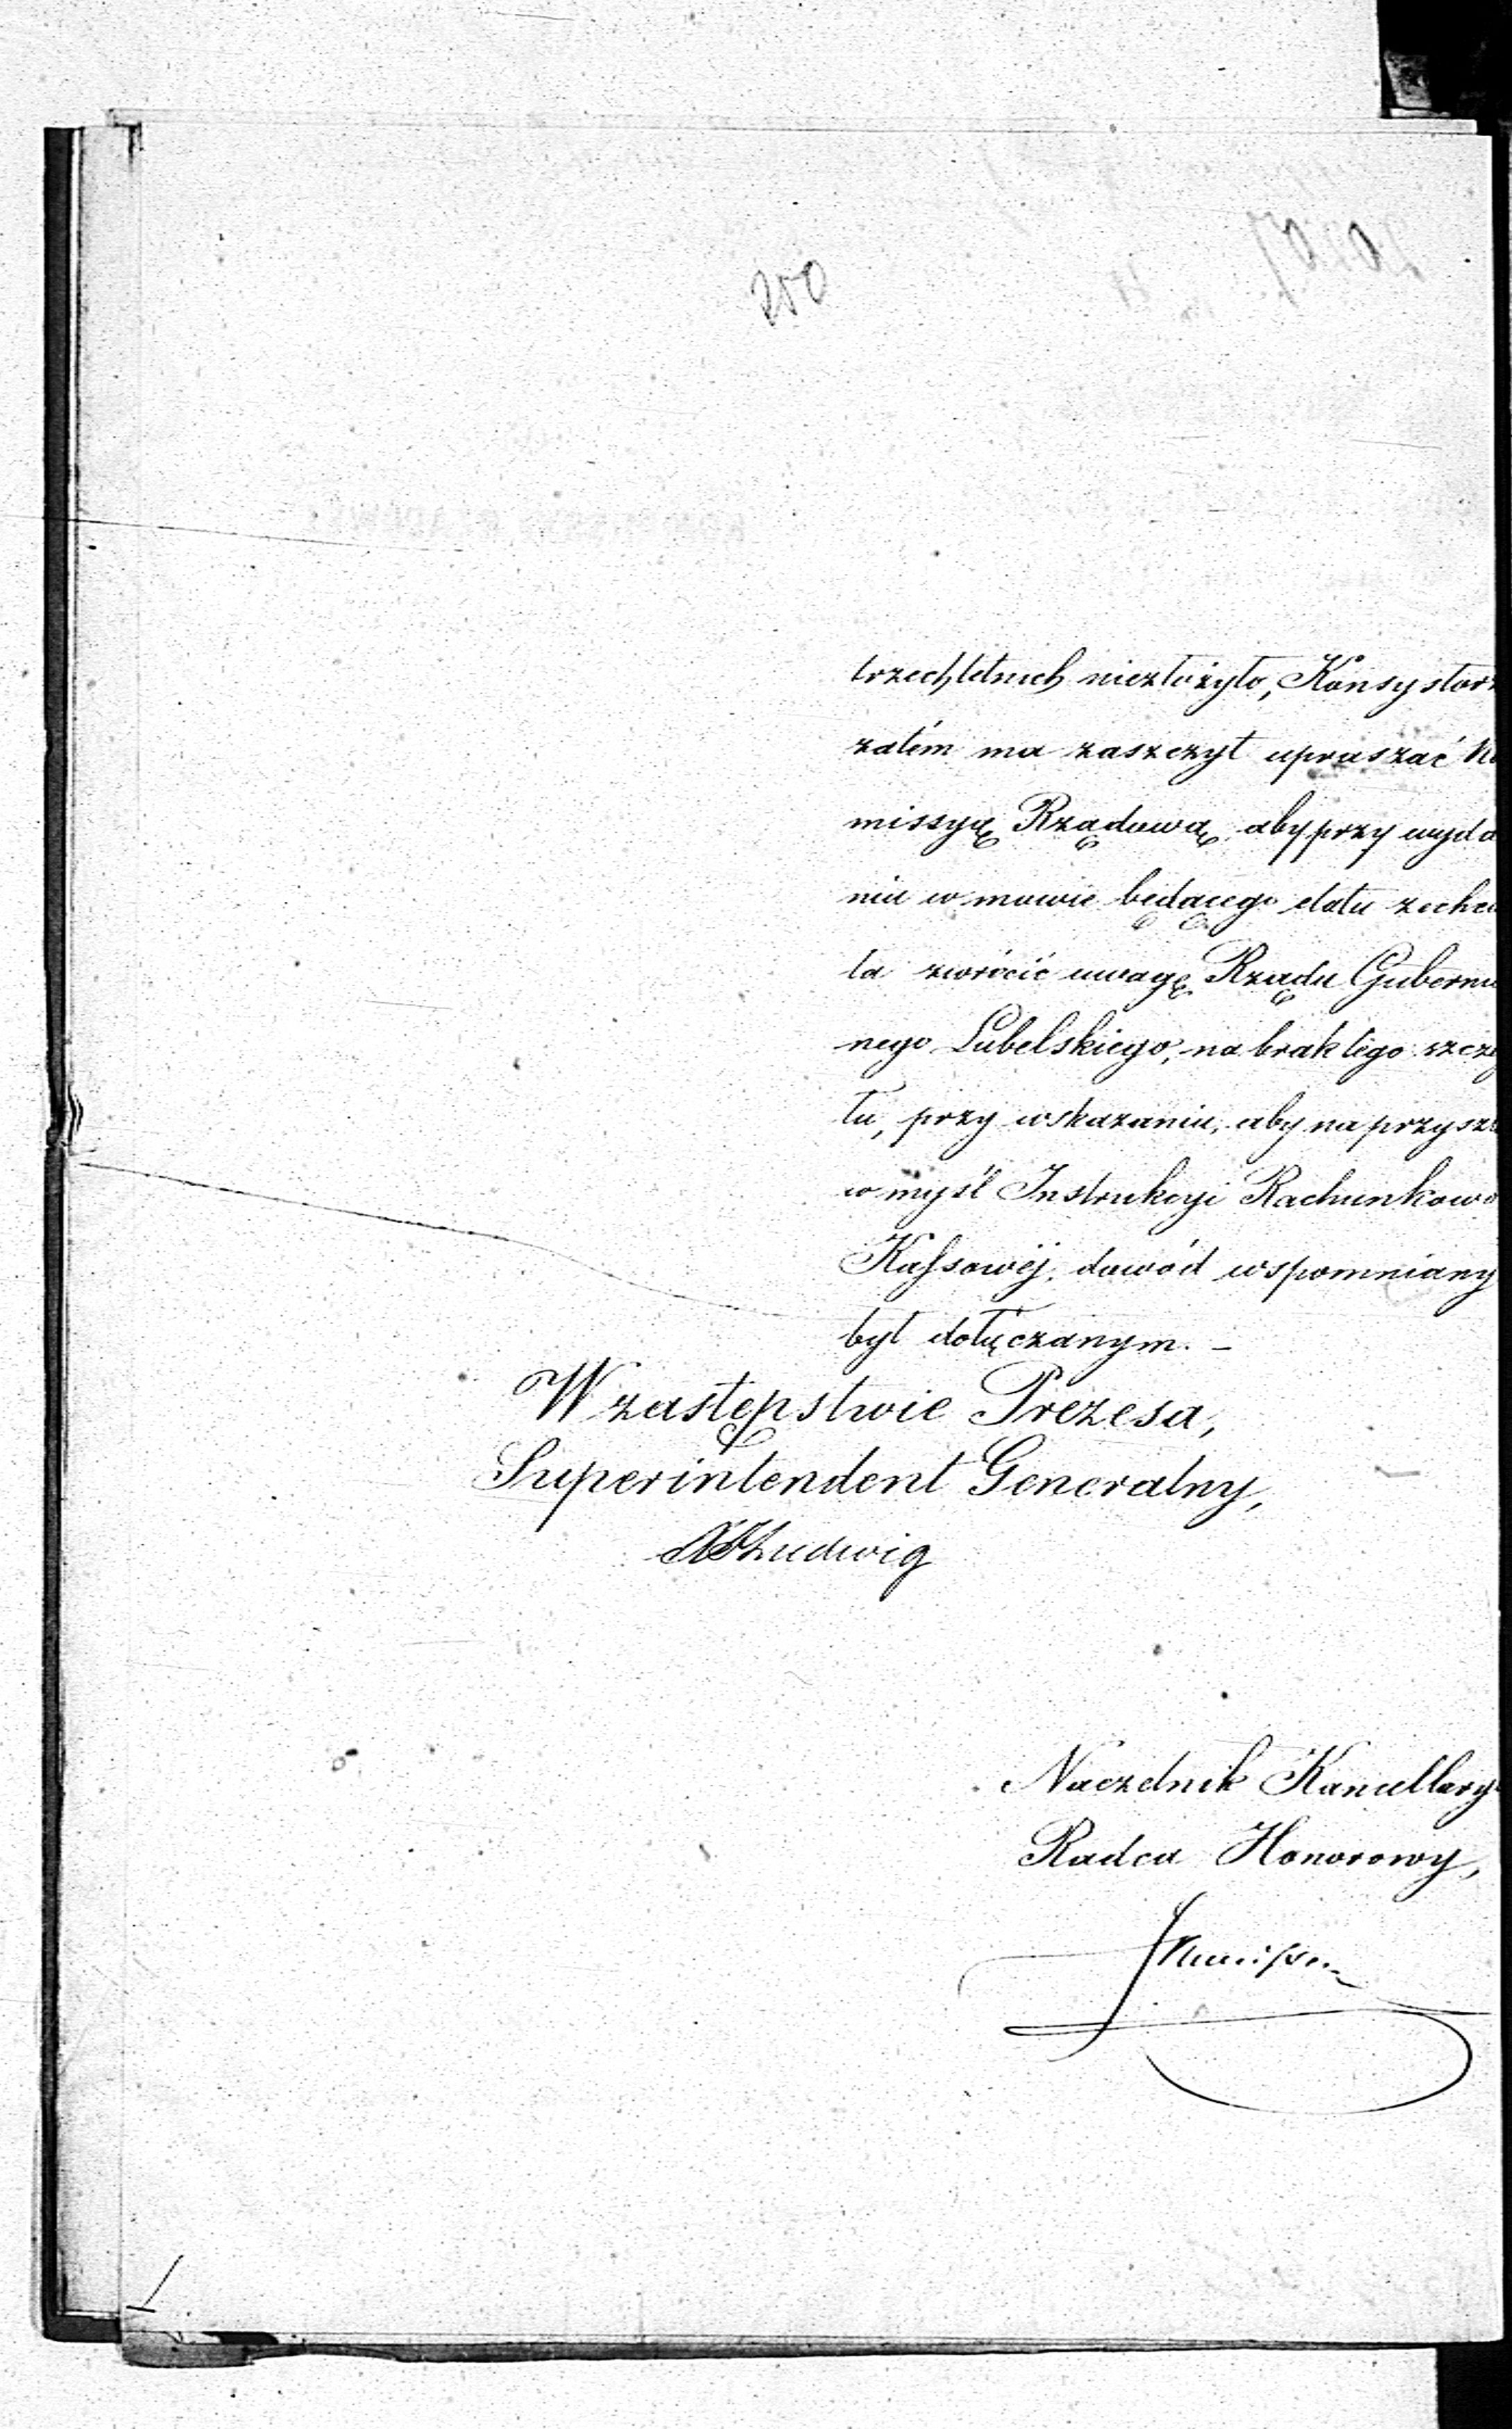 250
trzechletnich niezłożyło, Konsystorz
zatém ma zaszczyt upraszać Ko
missyę Rządową, aby przy wyda
niu w mowie będącego etatu zechcia
ła zwrócić uwagę Rządu Gubernial
nego Lubelskiego, na brak tego szczegó
łu, przy wskazaniu, aby na przyszłość
w myśl Instrukcyi Rachunkowo
Kassowéj, dowód wspomniany
był dołączanym. –
W zastępstwie Prezesa,
Superintendent Generalny,
Ludwig
Naczelnik Kancellaryi
Radca Honorowy,